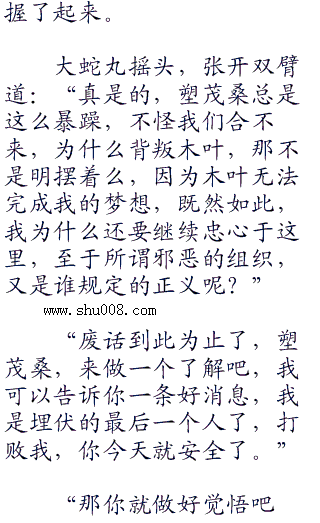 握了起来。
大蛇丸摇头，张开双臂
道：“真是的，塑茂桑总是
这么暴躁，不怪我们合不
来，为什么背叛木叶，那不
是明摆着么，因为木叶无法
完成我的梦想，既然如此，
我为什么还要继续忠心于这
里，至于所谓邪恶的组织，
又是谁规定的正义呢？”
www.shu008.com
“废话到此为止了，塑
茂桑，来做一个了解吧，我
可以告诉你一条好消息，我
是埋伏的最后一个人了，打
败我，你今天就安全了。”
“那你就做好觉悟吧